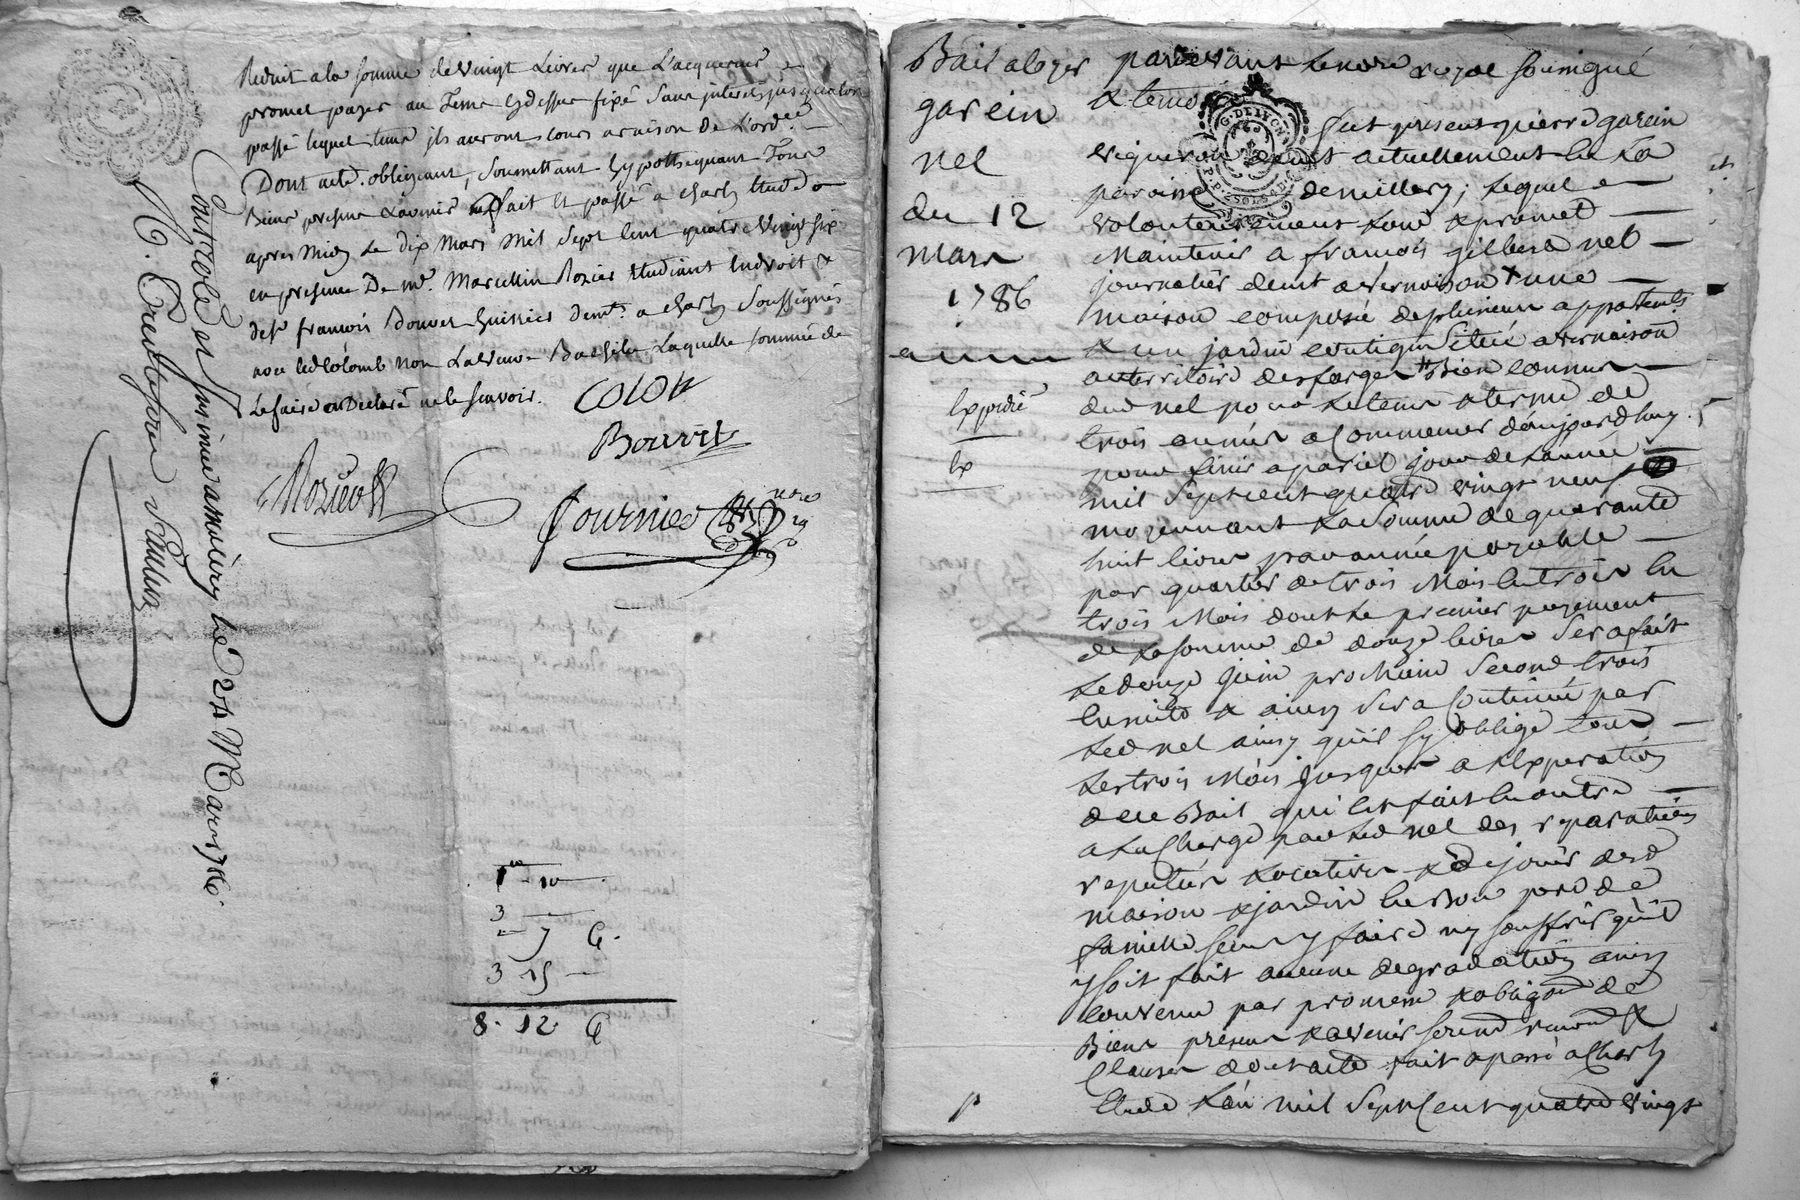 Reduit a la somme de vingt Livres que L'acquereur
promet payer au Terme cydessus fixé sans interets jusqualors
passé lequel tems ils auront cours a raison de L'ord.ce
Dont acte. obligeant, soumettant hypothequant Tous
Biens presens & avenir fait et passé a charly Etude
apres midy Le dix Mars Mil Sept Cent quatre Vingt six
en presence De mr. Marcellin Rozier Etudiant En droit &
de sr francois Bouvet huissier demt. a charly Soussignés
avec led Colomb non La veuve Laquelle sommée de
Le faire a Declaré ne le scavoir.
COLON
Bouvet
Rozier
fournier nore
Controlé et insinué a millery Le 24 Mars 1786.
10
3
7 6.
3 15
8. 12. 6
Bail a loyer
garcin
nel
du 12
mars
1786
Expedié
Ex
pardevant Le nore royal soussigné
& temo
fut present pierre garcin
vigneron demt actuellement en La
paroisse de millery; Lequel
volontairement Loue & promet
Maintenir a francois gilbert nel
journalier demt a vernaison + une
maison composée de plusieurs appartents.
& un jardin contigu Situé a vernaison
au territoire des forges Bien connus
dud nel pour Le tems & terme de
trois années a Commencer d'aujourdhuy.
pour finir a pareil jour de L'année
mil Sept cent quatre vingt neuf
moyennant La Somme de quarante
huit livres par année payable
par quartier de trois Mois En trois En
trois Mois dont Le premier payement
de La somme de douze livres Sera fait
Le douze juin prochain Second trois
Ensuite & ainsy Sera Continué par
Led nel ainsy qu'il sy oblige tous
Les trois Mois jusques a L'Expiration
du Bail qui Est fait En outre
a La Charge par Led nel des reparations
reputées Locatives & de jouir desd
maison & jardin En Bon pere de
famille sans y faire ny souffrir qu'il
y soit fait aucune degradation ainsy
Convenu par promesse & obligaon de
Biens presens & avenir serment renond &
Clauses dont acte fait & passé a Charly
Etude L'an mil Sept Cent quatre vingt